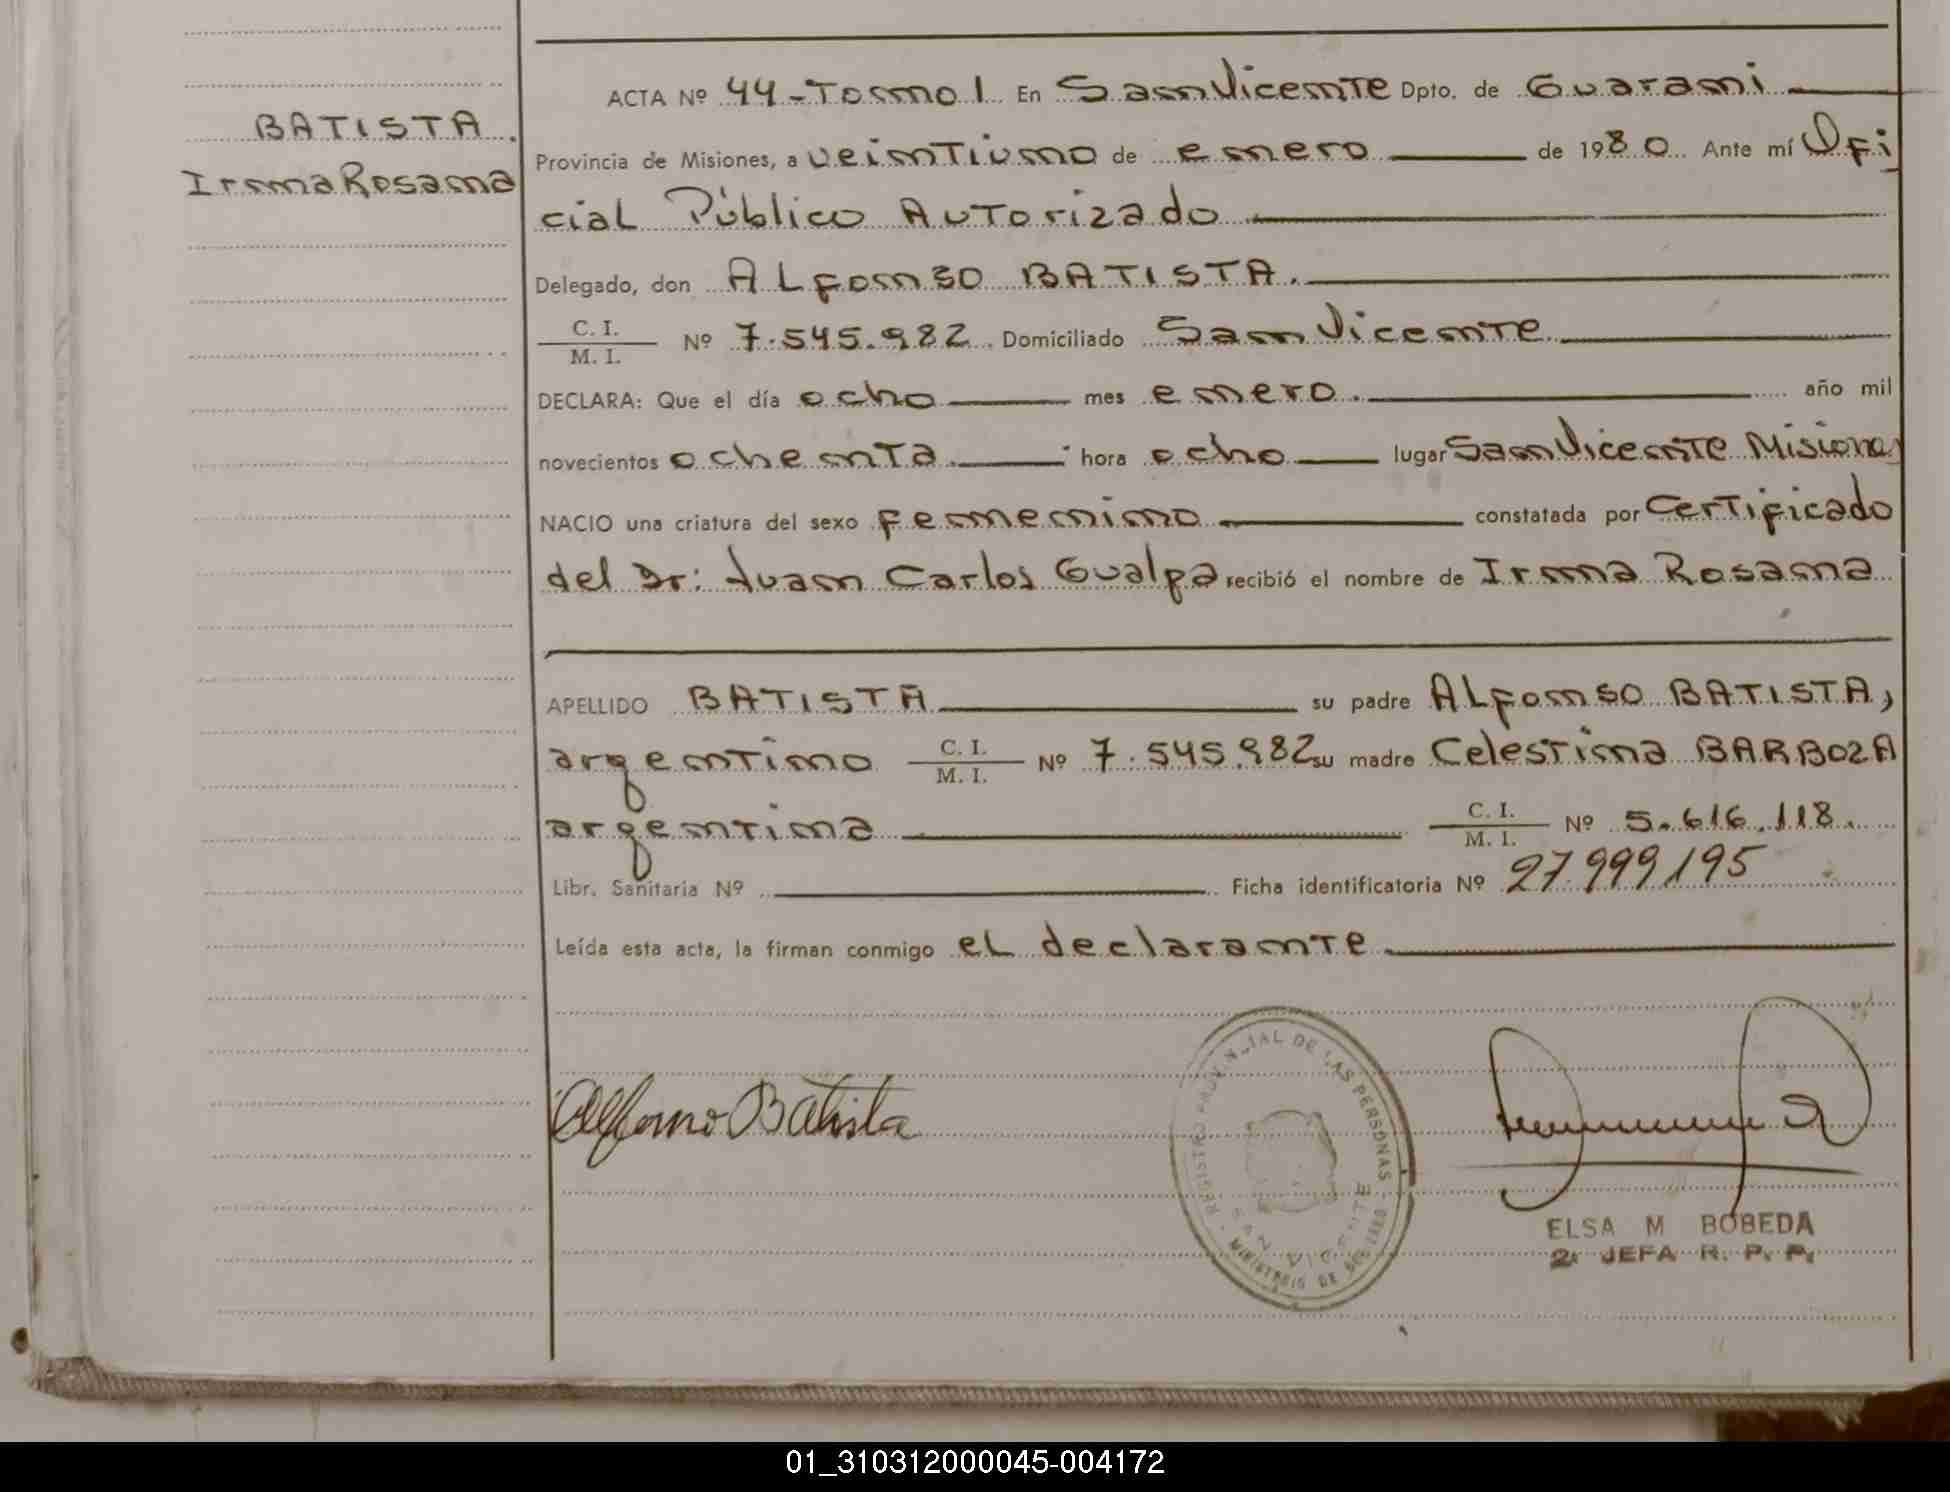 BATISTA.
Irma Rosana
ACTA Nº 44-Tomo I En San Vicente Dpto. de Guarani
Provincia de Misiones, a veintiuno de enero de 1980 Ante mí Ofi
cial Público Autorizado
Delegado, don ALFonso BATISTA.
C. I.
M. I. Nº 7.545.982 Domiciliado San Vicente
DECLARA: Que el día ocho mes enero. año mil
novecientos ochenta hora ocho lugar San Vicente Misiones
NACIO una criatura del sexo femenino constatada por Certificado
del Dr: Juan Carlos Gualpa recibió el nombre de Irma Rosana
APELLIDO BATISTA su padre ALFonso BATISTA,
argentino C. I. M. I. Nº 7.545.982 su madre Celestina BARBOZA
argentina C. I. M. I. Nº 5.616.118.
Libr. Sanitaria Nº Ficha identificatoria Nº 27.999195
Leída esta acta, la firman conmigo el declarante
Alfonso Batista
REGISTRO PROVINCIAL DE LAS PERSONAS
SAN VICENTE
MINISTERIO DE
ELSA M BOBEDA
2. JEFA R. P. P.
01_310312000045-004172